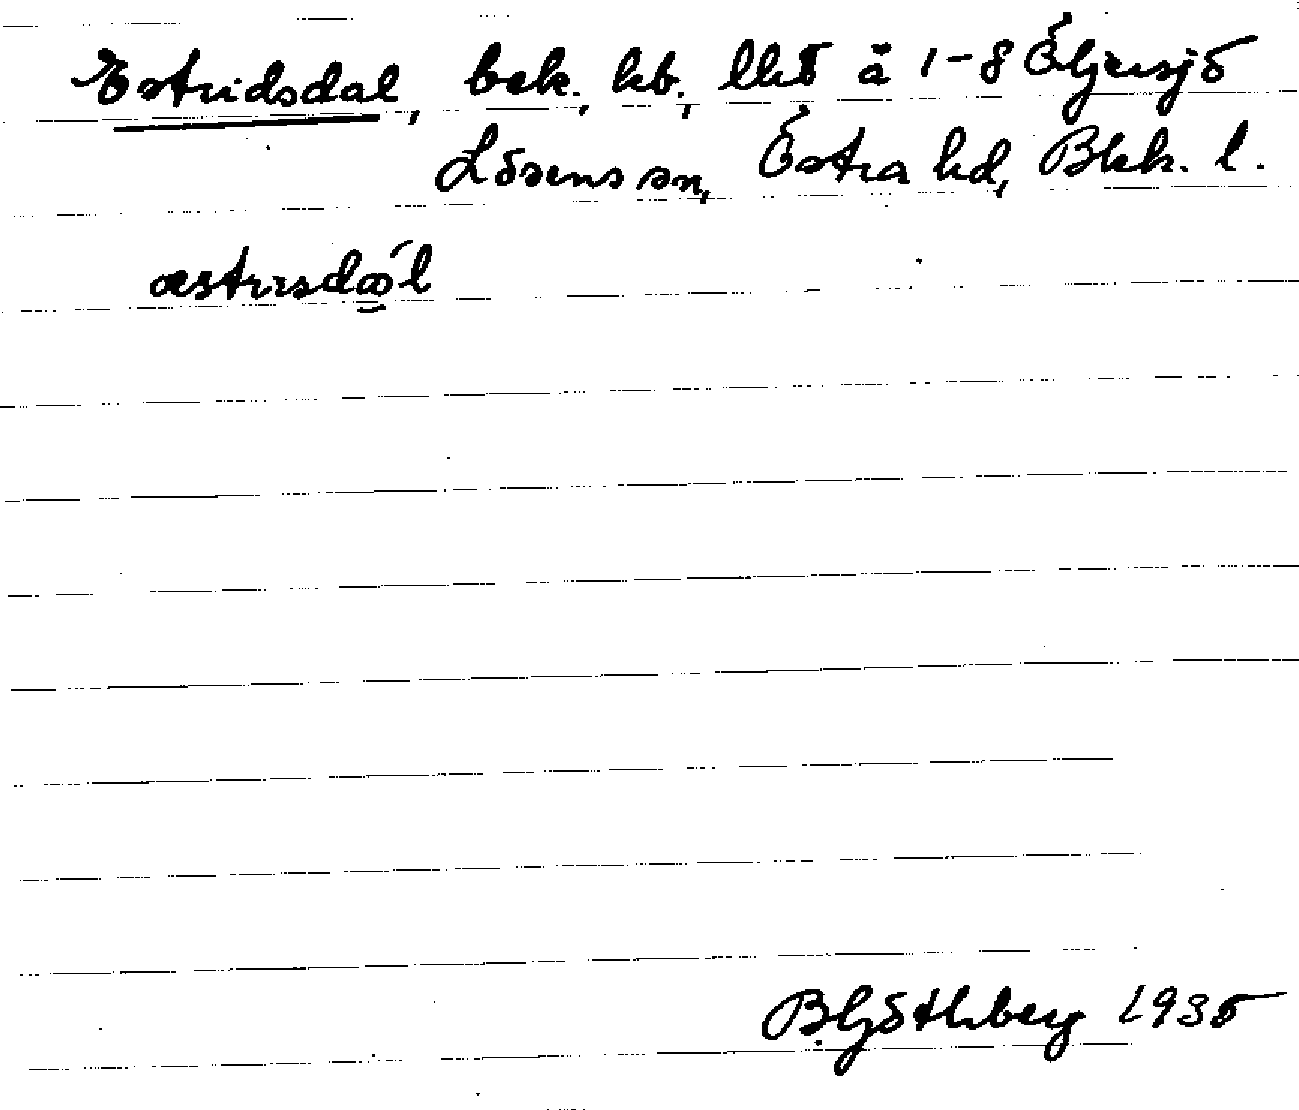 Estridsdal, bek. kb., lht å 1-8 Öljersjö
Lösens sn, Östra hd, Blek. l.
æstrısdǽl
B. Göthberg 1935